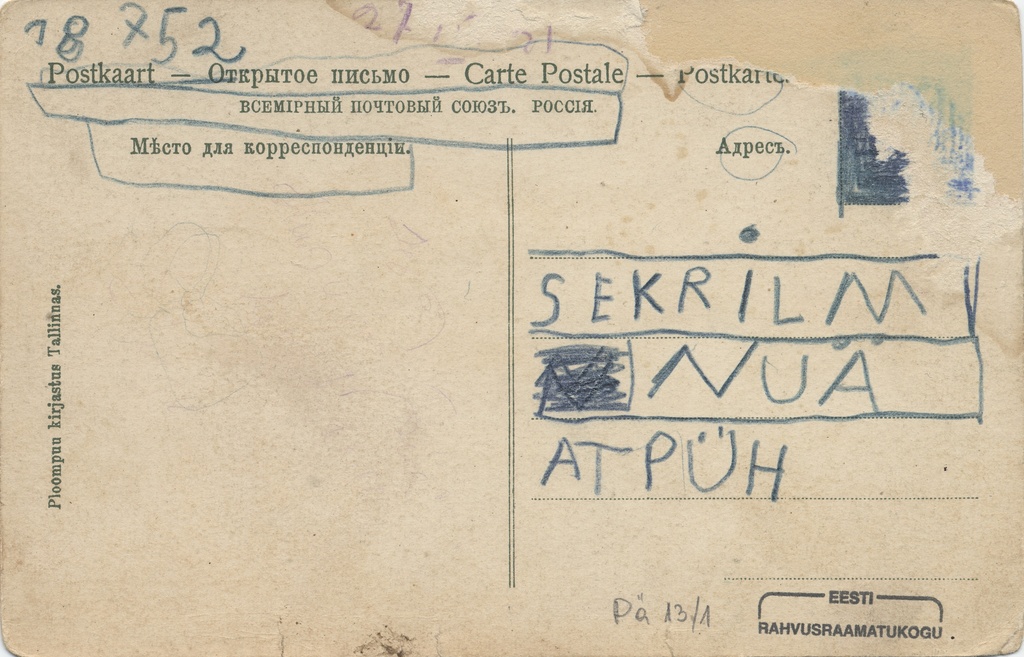 18 752
27 IV 21
Postkaart — Открытое письмо — Carte Postale — Postkarte.
ВСЕМІРНЫЙ ПОЧТОВЫЙ СОЮЗЪ. РОССІЯ.
Мѣсто для корреспонденціи.
Адресъ.
SEKRILM
NUÄ
ATPÜH
Ploompuu kirjastus Tallinnas.
Pä 13/1
EESTI
RAHVUSRAAMATUKOGU